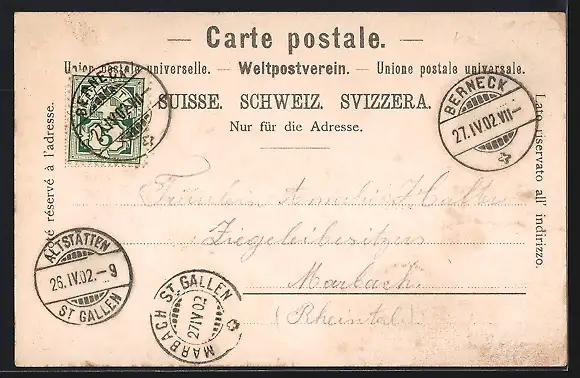 — Carte postale. —
Union postale universelle. — Weltpostverein. — Unione postale universale.
SUISSE. SCHWEIZ. SVIZZERA.
Nur für die Adresse.
Côté réservé à l'adresse.
Lato riservato all' indirizzo.
BERNECK
5
BERNECK
27.IV.02.VII–
ALTSTÄTTEN
26.IV.02.–9
ST GALLEN
ST. GALLEN
27 IV 02
MARBACH
Fräulein
Ziegeleibesitzers
Marbach
(Rheintal)